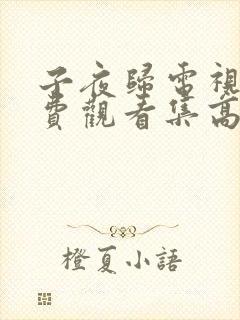 子夜歸電視
費觀看集高
橙夏小語